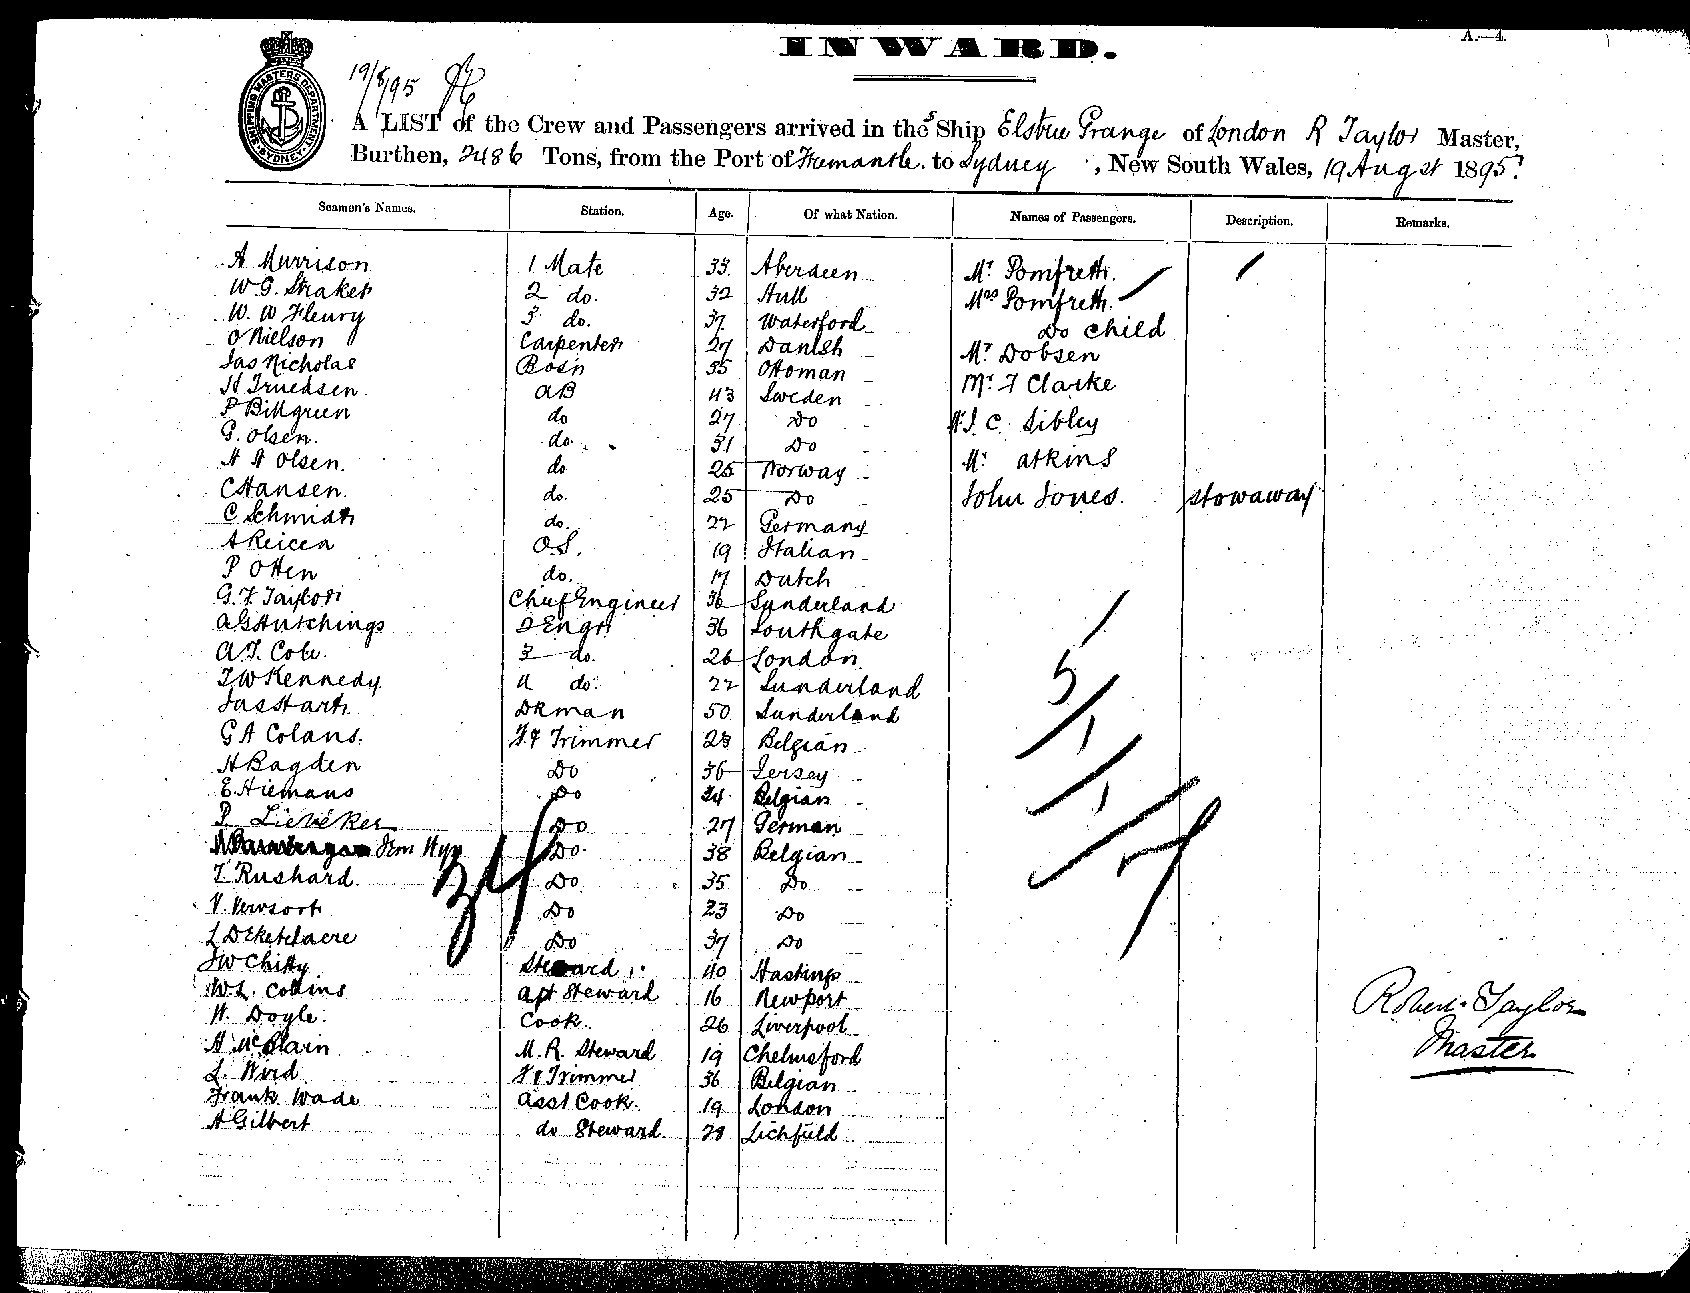 INWARD.
A.—4.
19/8/95
SHIPPING MASTERS DEPARTMENT SYDNEY
A LIST of the Crew and Passengers arrived in the S Ship Elstree Grange of London R Taylor Master,
Burthen, 2486 Tons, from the Port of Fremantle to Sydney, New South Wales, 19 August 1895
Seamen's Names. Station. Age. Of what Nation. Names of Passengers. Description. Remarks.
A Murrison 1 Mate 33 Aberdeen Mr Pomfrett
W G. Straker 2 do. 32 Hull Mrs Pomfrett
W. W Fleury 3 do. 37 Waterford Do child
O Nielson Carpenter 27 Danish Mr Dobsen
Jas Nicholas Bosn 35 Ottoman Mr F Clarke
H Truedsen AB 43 Sweden
P Billgreen do 27 Do C Sibley
G. Olsen. do 31 Do
A A Olsen. do 25 Norway Mr Atkins
C Hansen. do. 25 Do John Jones. Stowaway
C Schmidt do. 22 Germany
A Reicen O.S. 19 Italian
P Otten do. 17 Dutch
G. F. Taylor Chief Engineer 36 Sunderland
A G Hutchings 2 Engr 36 Southgate
A. T. Cole 3 do. 26 London
T W Kennedy 4 do. 22 Sunderland
Jas Hart DKman 50 Sunderland
G A Colans. F & Trimmer 28 Belgian
H Bagden Do 36 Jersey
E Hiemans Do 24 Belgian
P. Do 27 German
Do 38 Belgian
T Rushard Do 35 Do
V. Versort Do 23 Do
L DeKetelaere Do 37 Do
J W Chitty Steward 40 Hastings
W L. Collins apt Steward 16 Newport
W. Doyle. Cook 26 Liverpool
A McBlain M. R. Steward 19 Chelmsford
L. F & Trimmer 36 Belgian
Frank Wade asst Cook 19 London
A Gilbert do Steward 28 Lichfield
34
5
1
1
7
Robert Taylor
Master